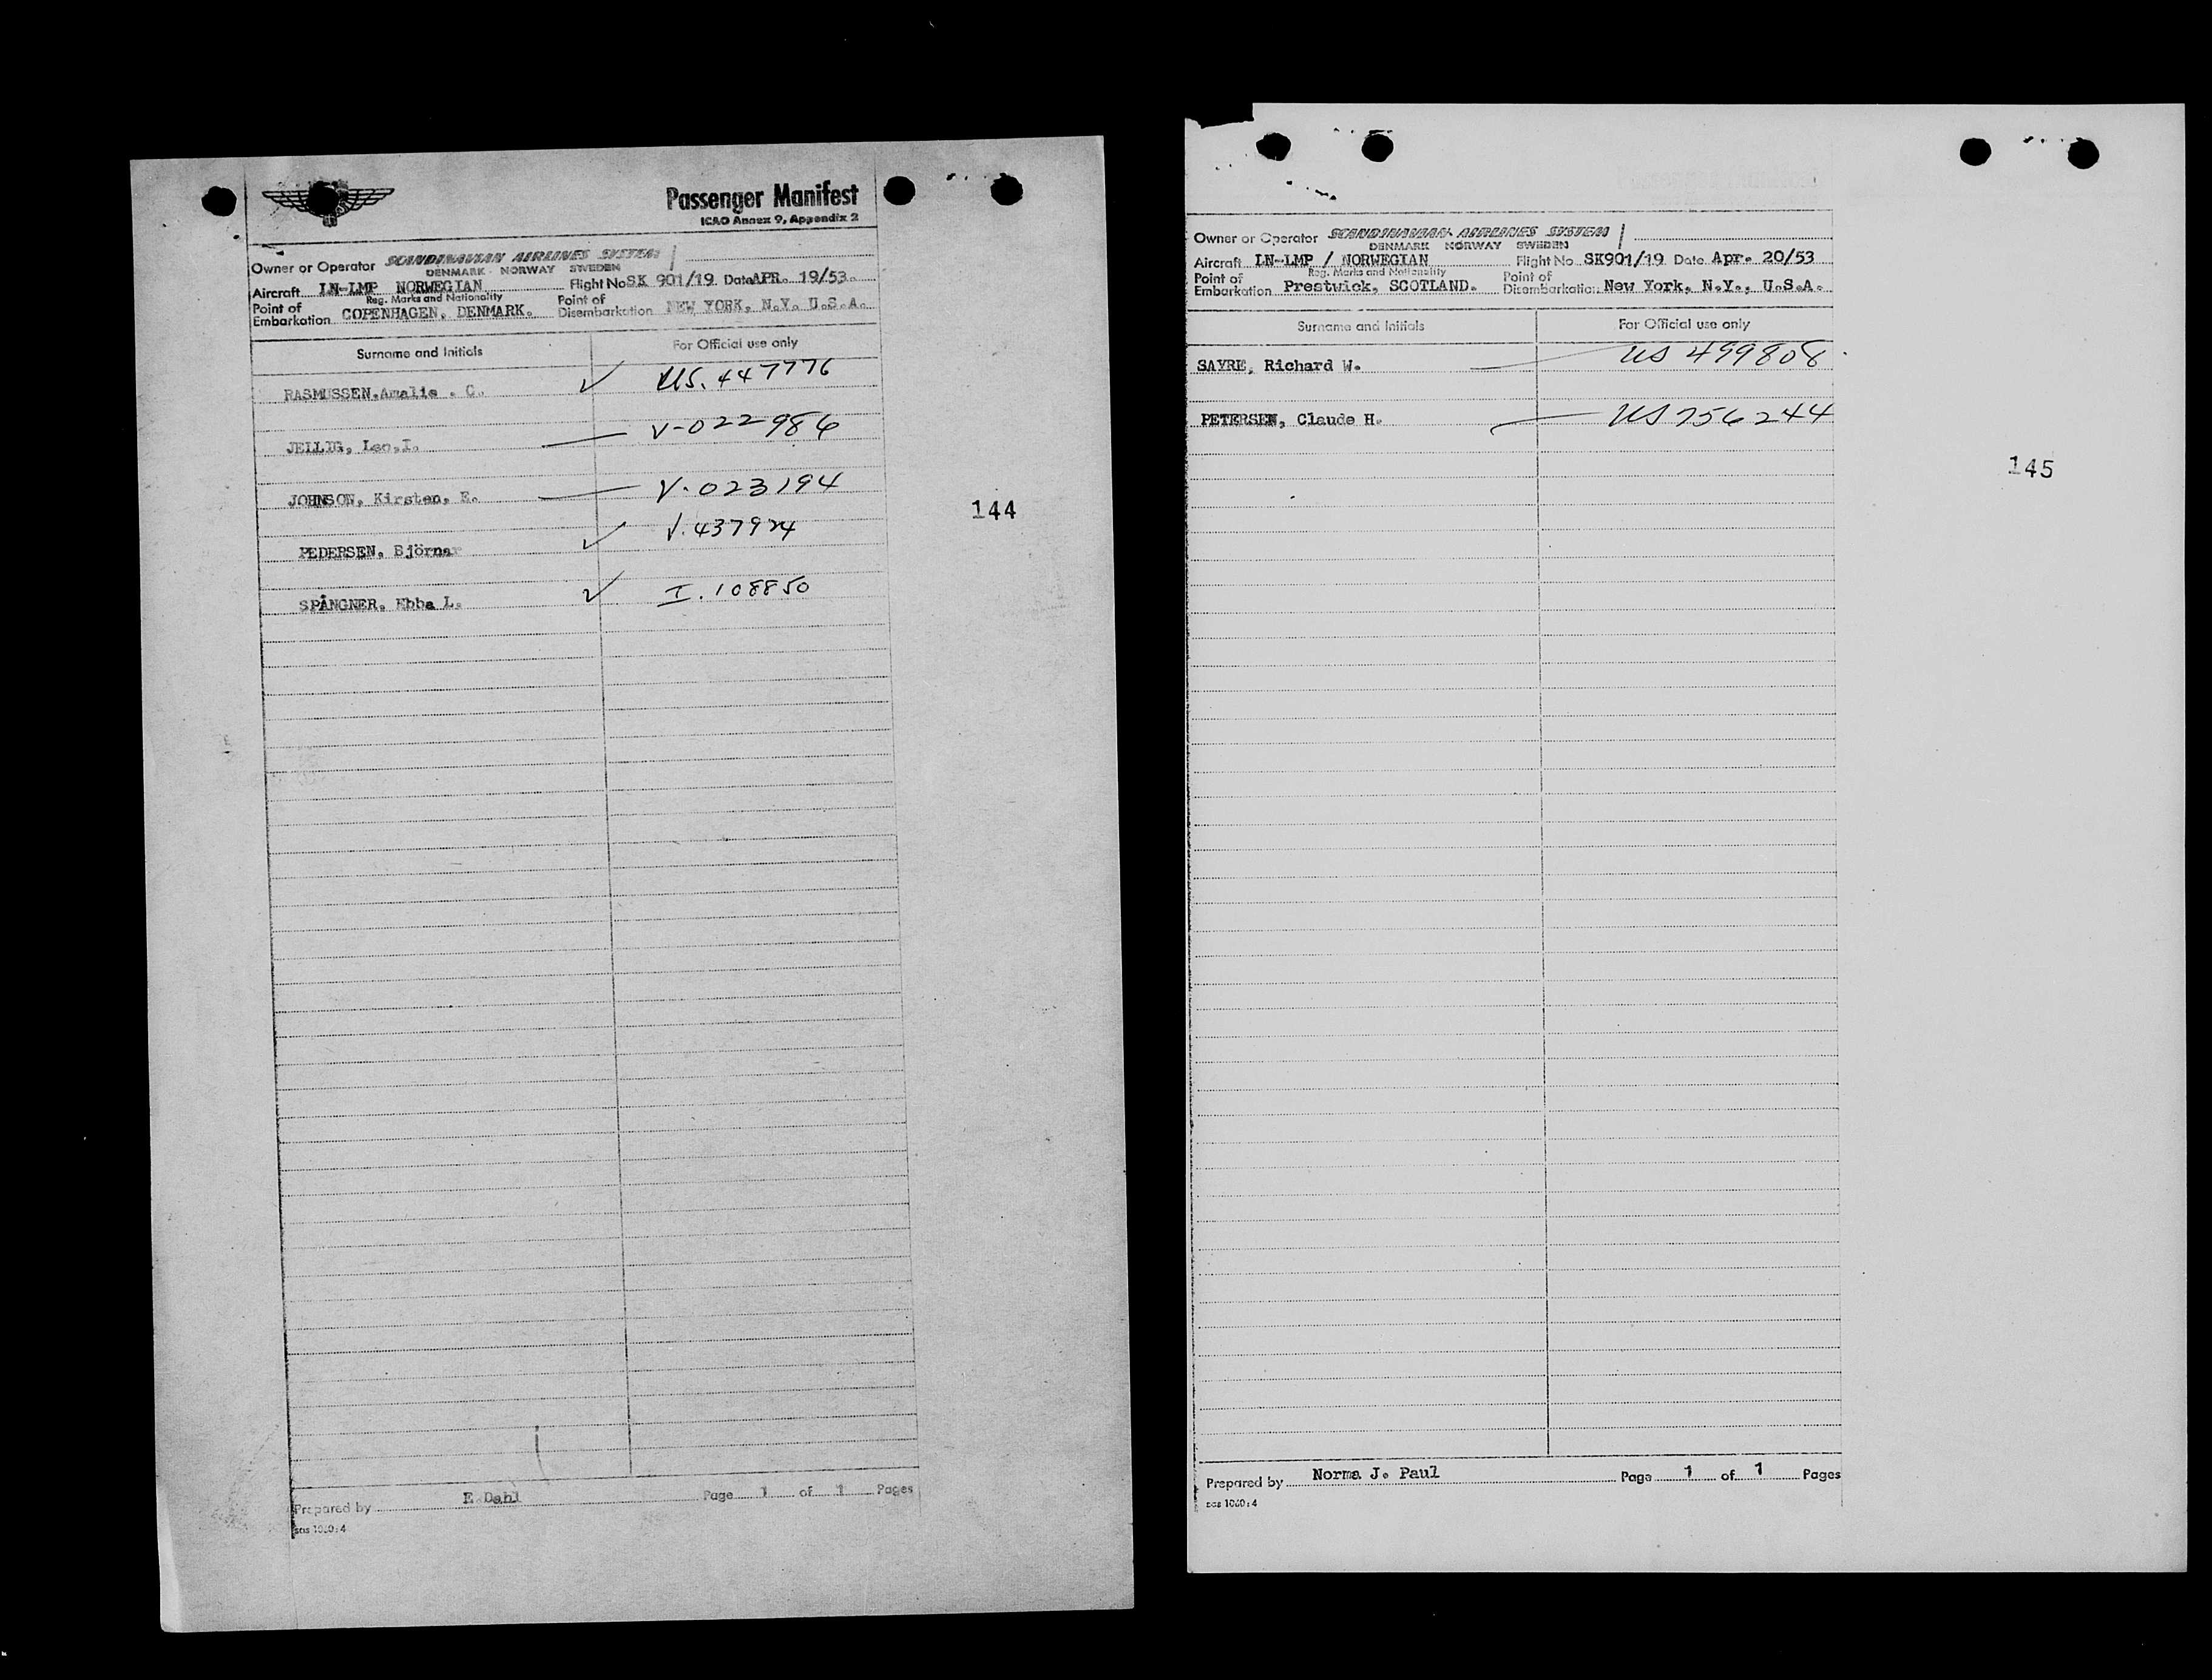 Passenger Manifest
ICAO Annex 9, Appendix 2
Owner or Operator SCANDINAVIAN AIRLINES SYSTEM
DENMARK NORWAY SWEDEN
Aircraft LN-LMP NORWEGIAN Flight No SK 901/19 Date APR. 19/53.
Reg. Marks and Nationality
Point of Embarkation COPENHAGEN, DENMARK. Point of Disembarkation NEW YORK, N.Y. U.S.A.
Surname and Initials For Official use only
RASMUSSEN,Amalie . C. ✓ US. 447776
JELLIG, Leo,I. — V-022986
JOHNSON, Kirsten, E. — V.023194
PEDERSEN, Björnar ✓ V.437924
SPÅNGNER, Ebba L. ✓ I.108850
144
Prepared by E Dahl Page 1 of 1 Pages
sas 1060:4
Owner or Operator SCANDINAVIAN AIRLINES SYSTEM
DENMARK NORWAY SWEDEN
Aircraft LN-LMP / NORWEGIAN Flight No SK901/19 Date Apr. 20/53
Reg. Marks and Nationality
Point of Embarkation Prestwick, SCOTLAND. Point of Disembarkation New York, N.Y., U.S.A.
Surname and Initials For Official use only
SAYRE, Richard W. — US 499808
PETERSEN, Claude H. — US 756244
145
Prepared by Norma J. Paul Page 1 of 1 Pages
sas 1060:4